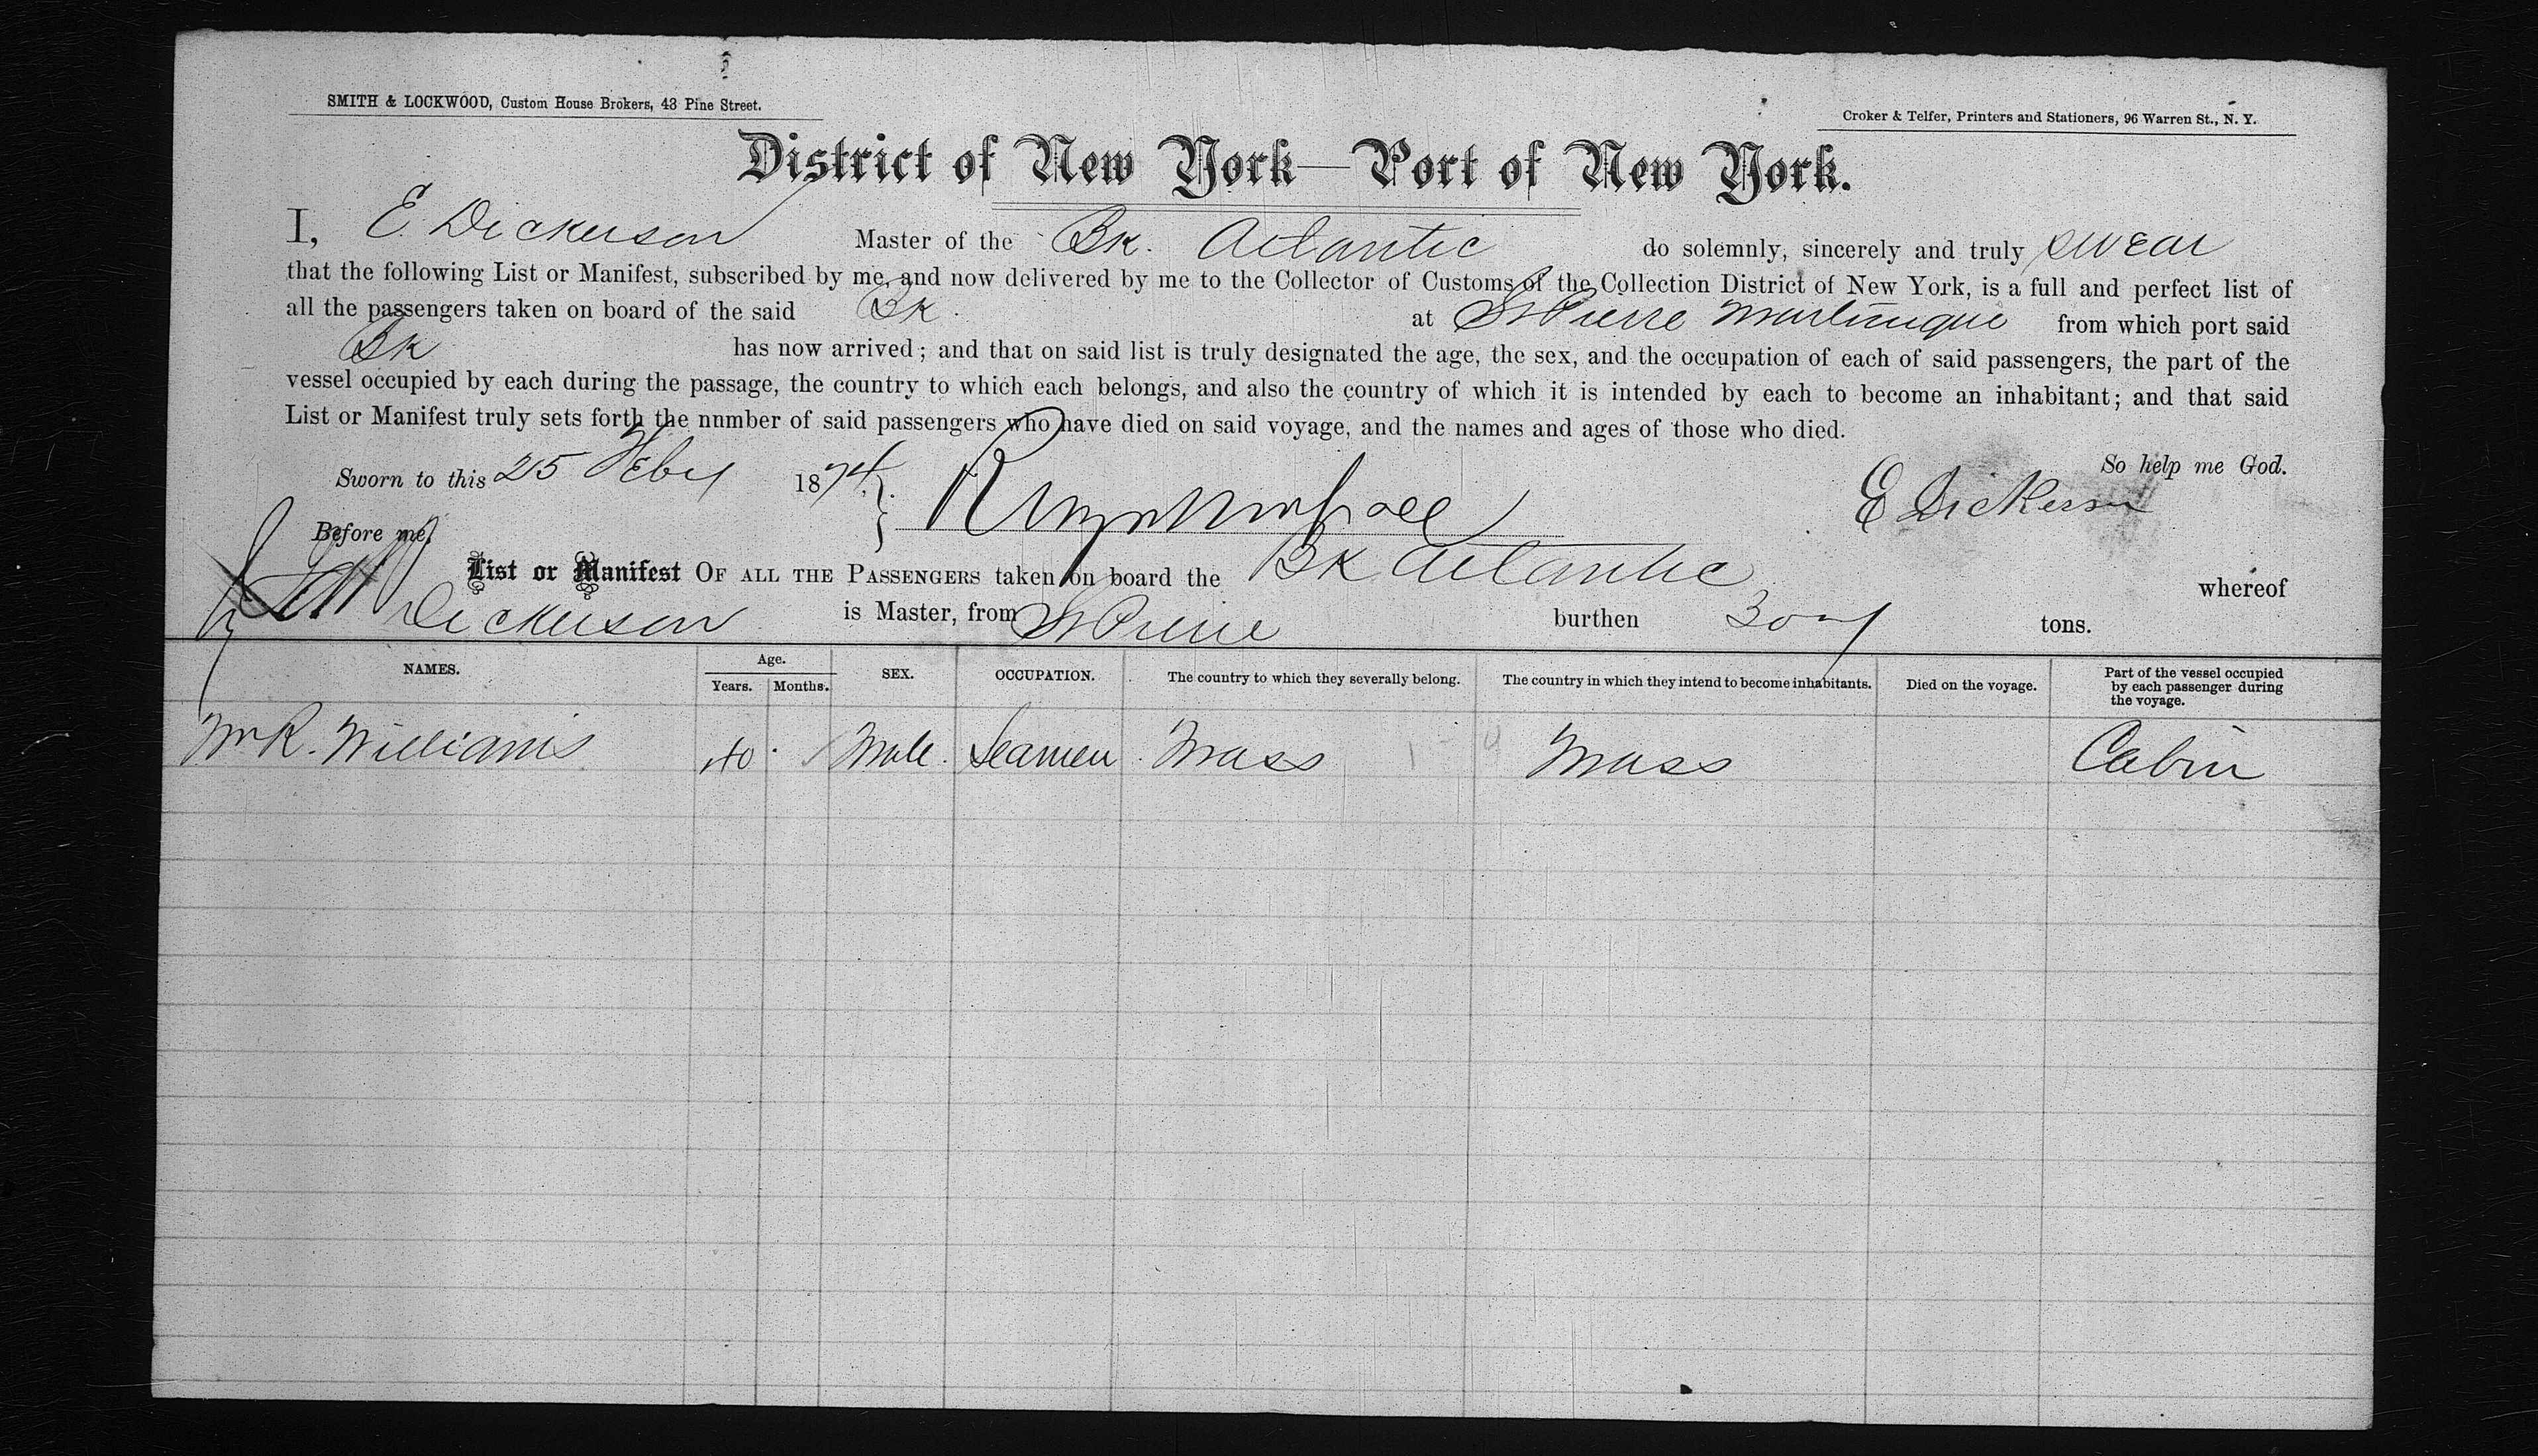 SMITH & LOCKWOOD, Custom House Brokers, 43 Pine Street.
Croker & Telfer, Printers and Stationers, 96 Warren St., N. Y.
District of New York—Port of New York.
I, E. Dickerson Master of the Bk. Atlantic do solemnly, sincerely and truly swear
that the following List or Manifest, subscribed by me, and now delivered by me to the Collector of Customs of the Collection District of New York, is a full and perfect list of
all the passengers taken on board of the said Bk. at St Pierre Martinique from which port said
Bk has now arrived; and that on said list is truly designated the age, the sex, and the occupation of each of said passengers, the part of the
vessel occupied by each during the passage, the country to which each belongs, and also the country of which it is intended by each to become an inhabitant; and that said
List or Manifest truly sets forth the number of said passengers who have died on said voyage, and the names and ages of those who died.
So help me God.
Sworn to this 25 Feby 1874. E Dickerson
Before me,
List or Manifest OF ALL THE PASSENGERS taken on board the Bk Atlantic whereof
Dickerson is Master, from St Pierre burthen tons.
NAMES. Age. Years. Months. SEX. OCCUPATION. The country to which they severally belong. The country in which they intend to become inhabitants. Died on the voyage. Part of the vessel occupied by each passenger during the voyage.
Wm R. Williams 40 Male. Seamen Mass Mass Cabin